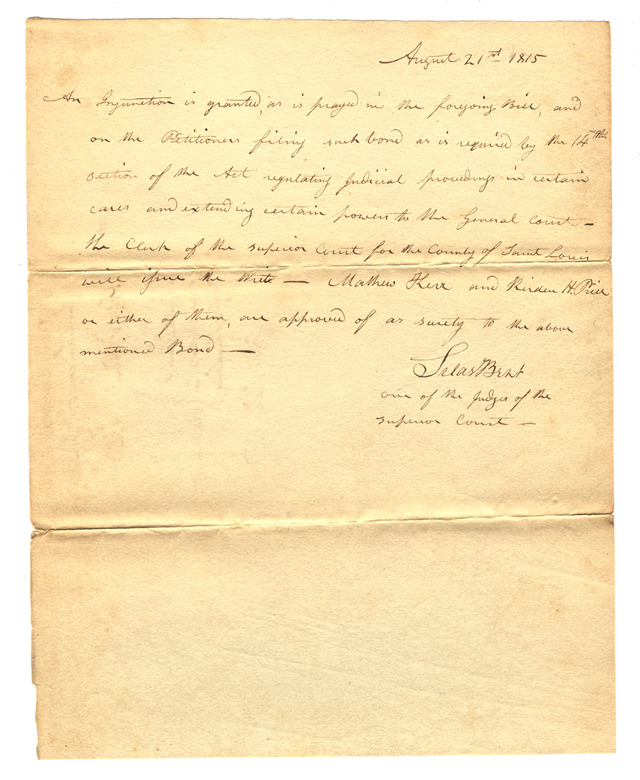 August 21st 1815
An Injunction is granted, as is prayed in the foregoing Bill, and
on the Petitioners filing such bond as is required by the 14th
section of the Act regulating Judicial proceedings in certain
cases and extending certain powers to the General Court —
the Clerk of the superior Court for the County of Saint Louis
will issue the Writ — Mathew Kerr and Risdon H. Price
or either of them, are approved of as surety to the above
mentioned Bond —
Silas Bent
one of the Judges of the
superior Court —